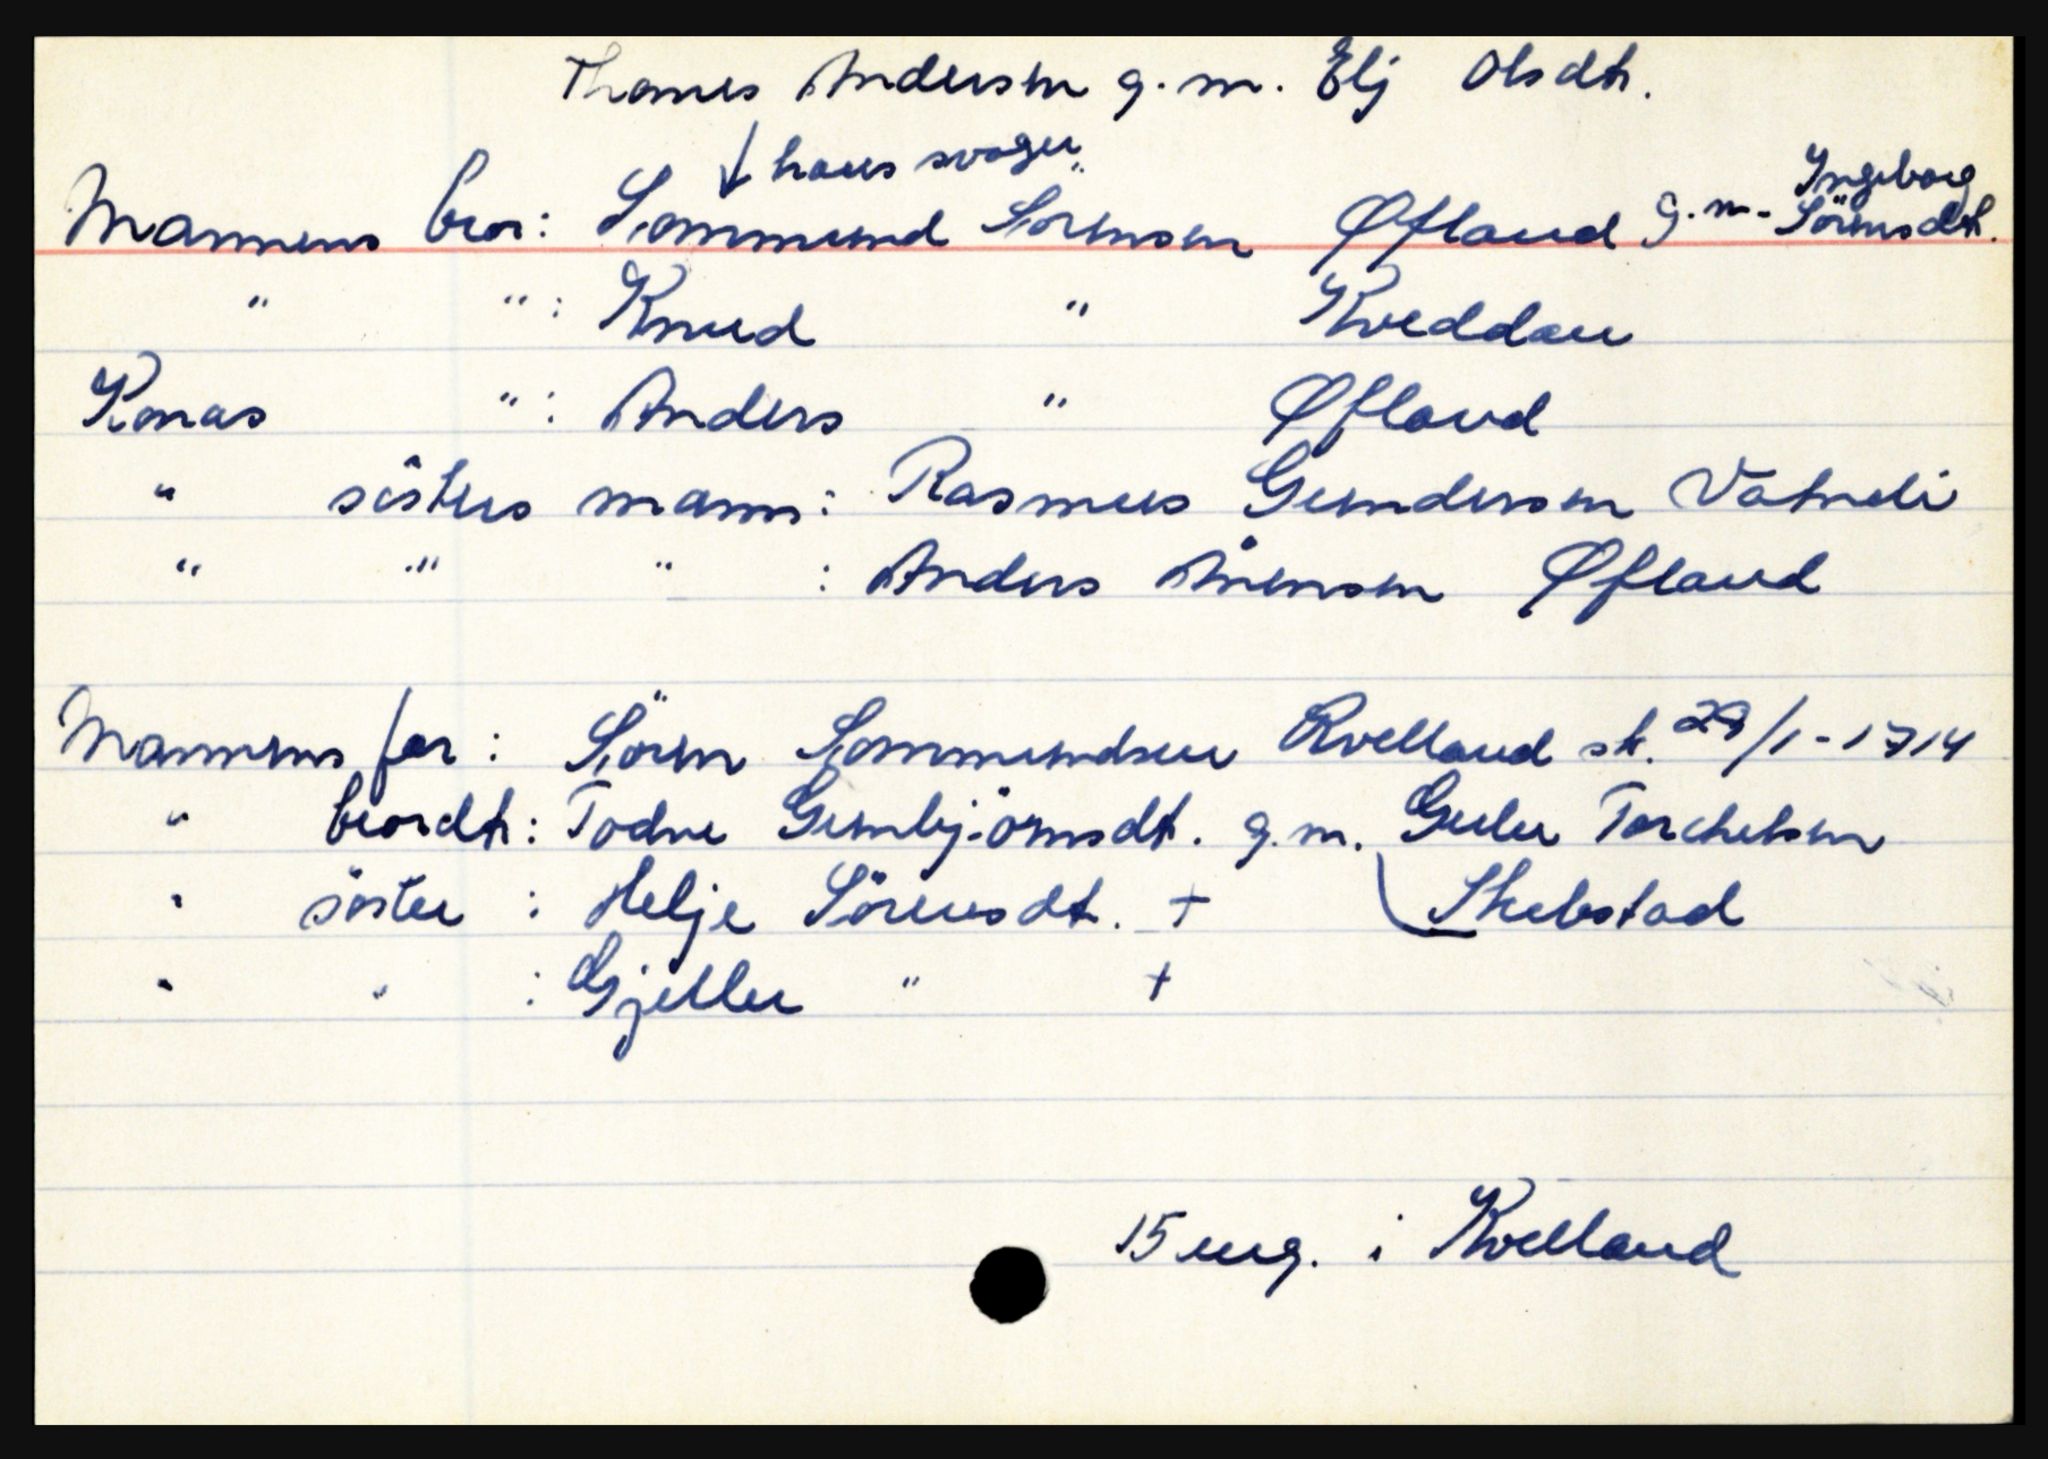 Thomes Andersen g. m. Elj Olsdtr.
↓ hans svoger
Mannens bror: Sommund Sørensen Øfland g.m. Ingeborg Sörensdtr.
" " : Knud " Kveddan
Konas " : Anders " Øfland
" sisters mann: Rasmus Gundersen Vatneli
" " " : Anders Ånensen Øfland
Mannens far: Sören Sommundsen Kvelland sk. 29/1-1714
" brordtr: Todne Gunbjörnsdtr. g.m. Guler Torchelsen
" söster : Helje Sörensdtr. + Skebstad
" " : Gjeller " +
15 ung. i Kvelland